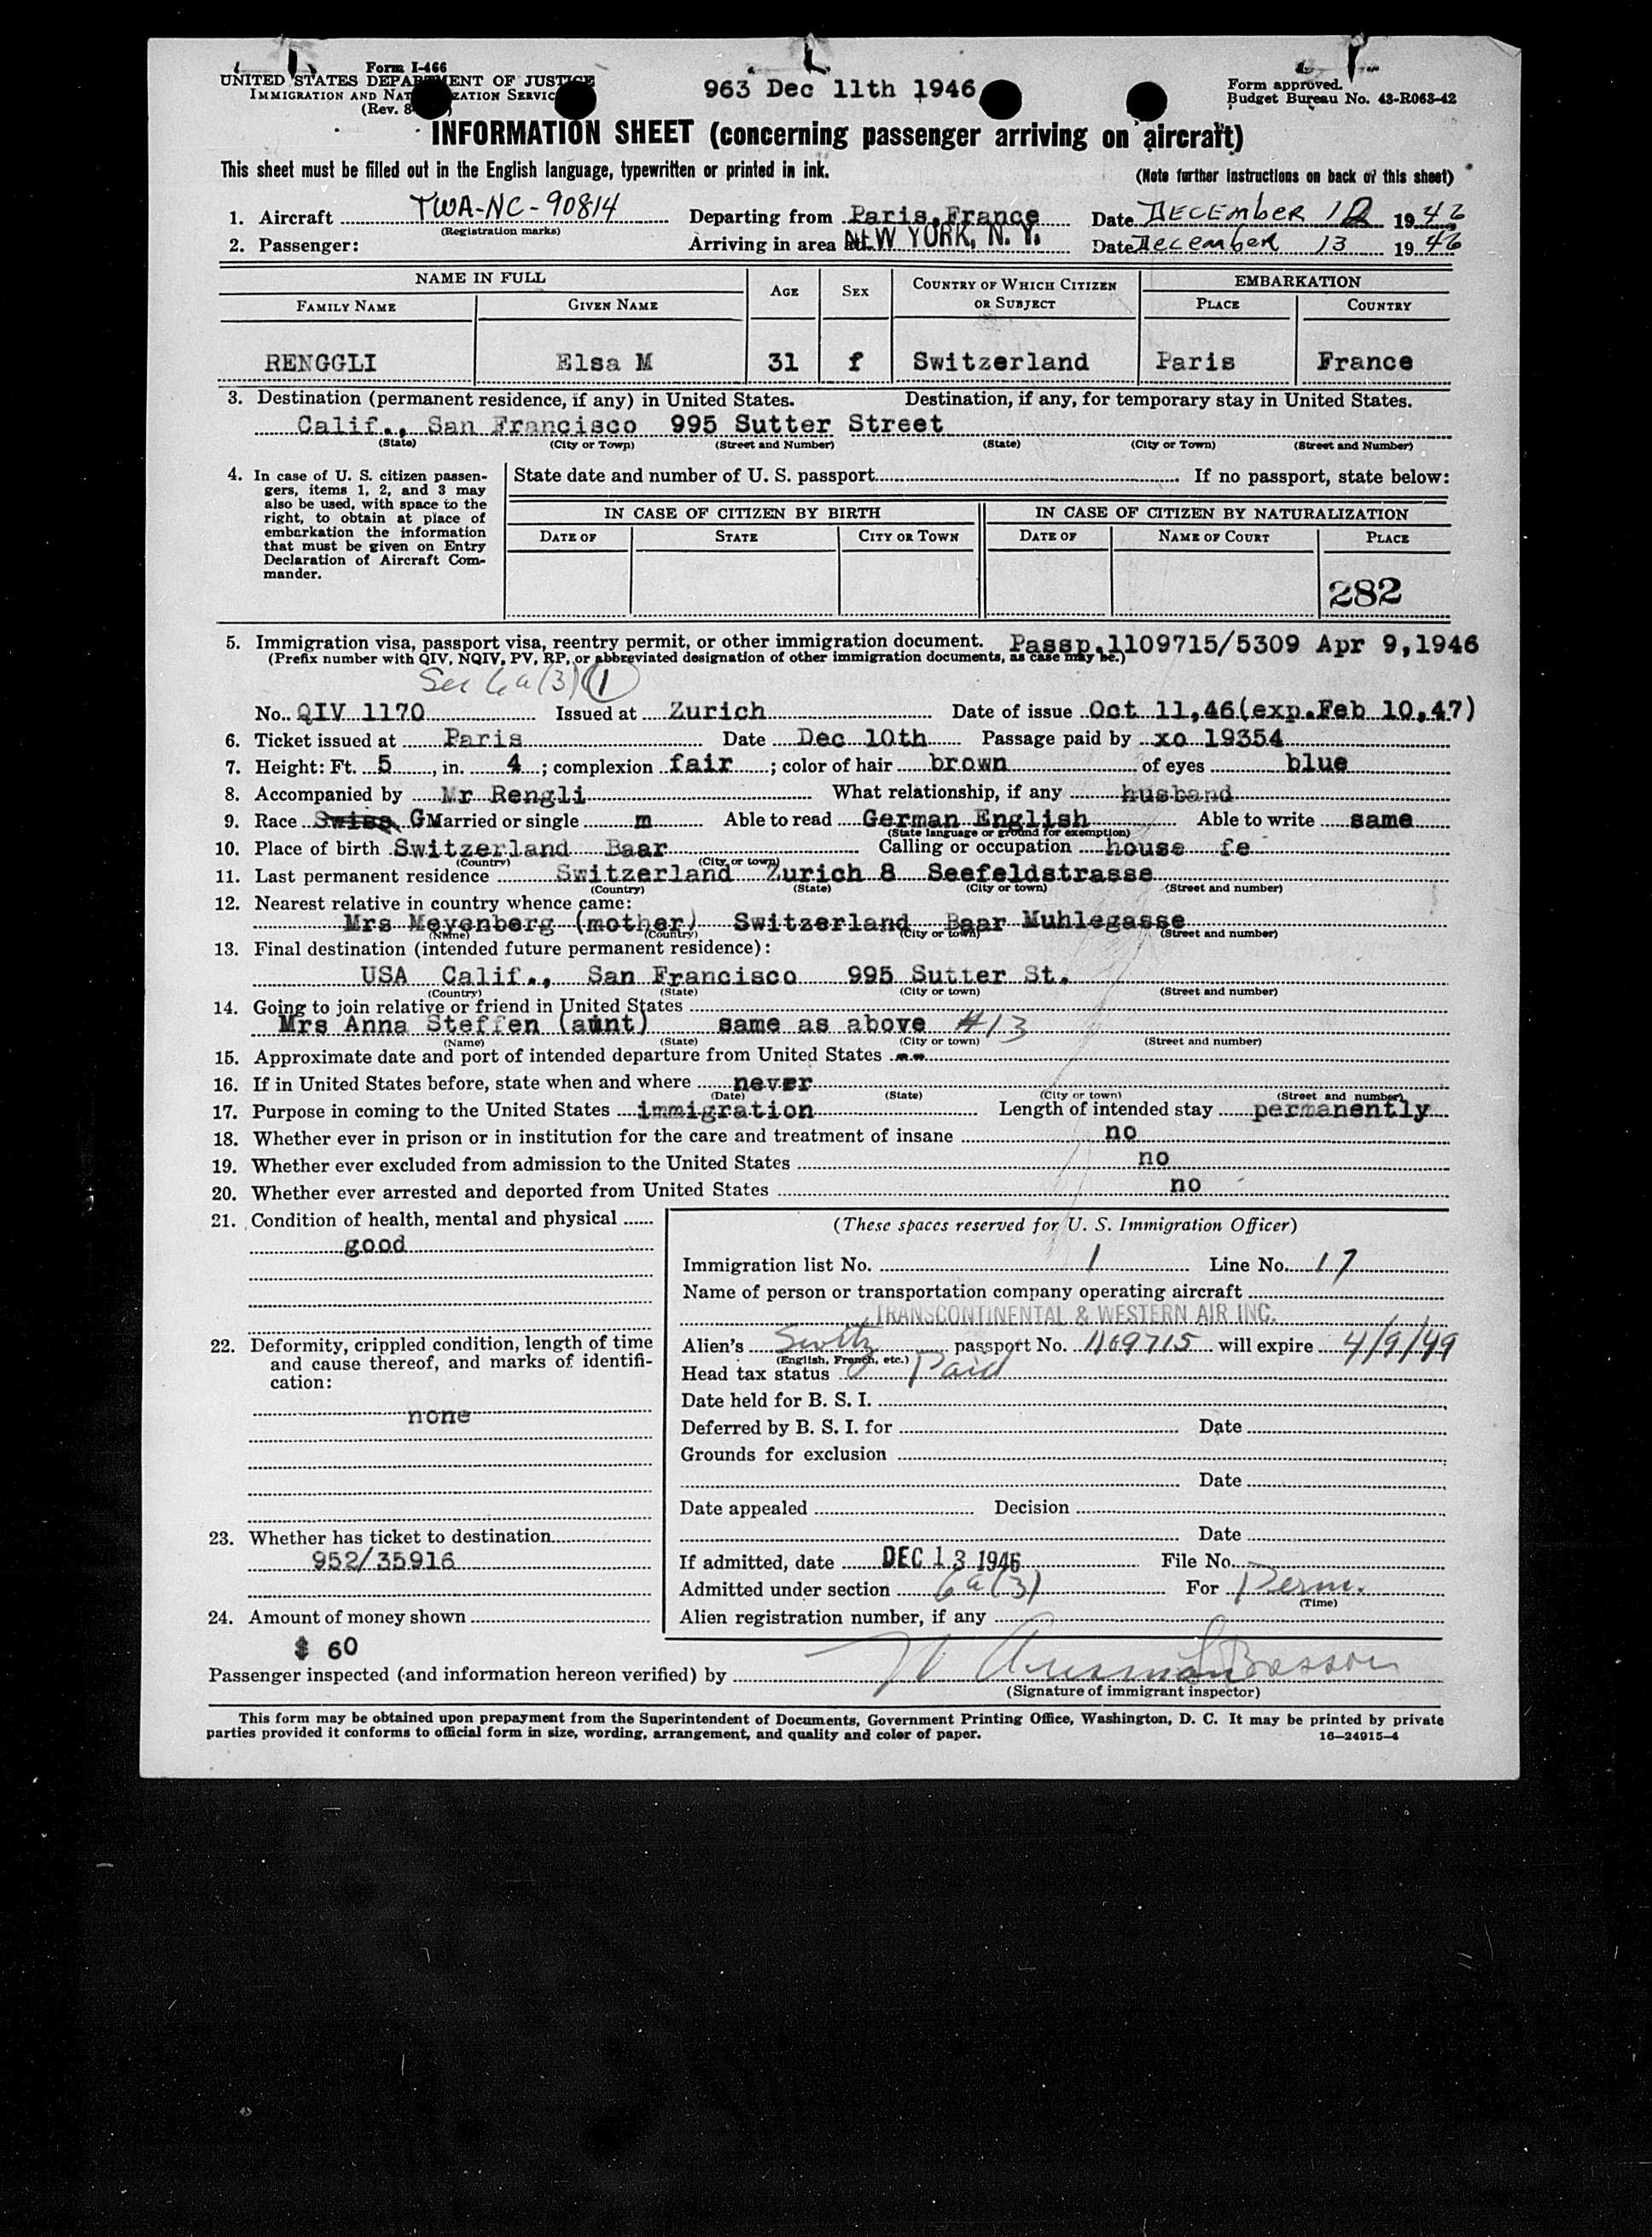 Form I-466
UNITED STATES DEPARTMENT OF JUSTICE
IMMIGRATION AND NATURALIZATION SERVICE
(Rev. 8
963 Dec 11th 1946
Form approved.
Budget Bureau No. 43-R063-42
INFORMATION SHEET (concerning passenger arriving on aircraft)
This sheet must be filled out in the English language, typewritten or printed in ink.
(Note further instructions on back of this sheet)
1. Aircraft TWA-NC-90814 Departing from Paris, France Date DECEMBER 12 1946
(Registration marks)
2. Passenger: Arriving in area at NEW YORK, N. Y. Date December 13 1946
NAME IN FULL AGE SEX COUNTRY OF WHICH CITIZEN OR SUBJECT EMBARKATION
FAMILY NAME GIVEN NAME PLACE COUNTRY
RENGGLI Elsa M 31 f Switzerland Paris France
3. Destination (permanent residence, if any) in United States. Destination, if any, for temporary stay in United States.
Calif., San Francisco 995 Sutter Street
(State) (City or Town) (Street and Number) (State) (City or Town) (Street and Number)
4. In case of U. S. citizen passen-
gers, items 1, 2, and 3 may
also be used, with space to the
right, to obtain at place of
embarkation the information
that must be given on Entry
Declaration of Aircraft Com-
mander.
State date and number of U. S. passport If no passport, state below:
IN CASE OF CITIZEN BY BIRTH IN CASE OF CITIZEN BY NATURALIZATION
DATE OF STATE CITY OR TOWN DATE OF NAME OF COURT PLACE
282
5. Immigration visa, passport visa, reentry permit, or other immigration document. Passp.1109715/5309 Apr 9,1946
(Prefix number with QIV, NQIV, PV, RP, or abbreviated designation of other immigration documents, as case may be.)
Sec 6a(3) (1)
No. QIV 1170 Issued at Zurich Date of issue Oct 11,46(exp.Feb 10,47)
6. Ticket issued at Paris Date Dec 10th Passage paid by xo 19354
7. Height: Ft. 5, in. 4; complexion fair; color of hair brown of eyes blue
8. Accompanied by Mr Rengli What relationship, if any husband
9. Race Swiss GM Married or single m Able to read German English Able to write same
(State language or ground for exemption)
10. Place of birth Switzerland Baar Calling or occupation house fe
(Country) (City or town)
11. Last permanent residence Switzerland Zurich 8 Seefeldstrasse
(Country) (State) (City or town) (Street and number)
12. Nearest relative in country whence came:
Mrs Meyenberg (mother) Switzerland Baar Muhlegasse
(Name) (Country) (City or town) (Street and number)
13. Final destination (intended future permanent residence):
USA Calif., San Francisco 995 Sutter St.
(Country) (State) (City or town) (Street and number)
14. Going to join relative or friend in United States
Mrs Anna Steffen (aunt) same as above #13
(Name) (State) (City or town) (Street and number)
15. Approximate date and port of intended departure from United States --
16. If in United States before, state when and where never
(Date) (State) (City or town) (Street and number)
17. Purpose in coming to the United States immigration Length of intended stay permanently
18. Whether ever in prison or in institution for the care and treatment of insane no
19. Whether ever excluded from admission to the United States no
20. Whether ever arrested and deported from United States no
21. Condition of health, mental and physical
good
22. Deformity, crippled condition, length of time
and cause thereof, and marks of identifi-
cation:
none
23. Whether has ticket to destination
952/35916
24. Amount of money shown
$ 60
(These spaces reserved for U. S. Immigration Officer)
Immigration list No. 1 Line No. 17
Name of person or transportation company operating aircraft
TRANSCONTINENTAL & WESTERN AIR INC.
Alien's Switz passport No. 1109715 will expire 4/9/49
(English, French, etc.)
Head tax status Paid
Date held for B. S. I.
Deferred by B. S. I. for Date
Grounds for exclusion
Date
Date appealed Decision
Date
If admitted, date DEC 13 1946 File No.
Admitted under section 6a(3) For Perm.
(Time)
Alien registration number, if any
Passenger inspected (and information hereon verified) by
(Signature of immigrant inspector)
This form may be obtained upon prepayment from the Superintendent of Documents, Government Printing Office, Washington, D. C. It may be printed by private
parties provided it conforms to official form in size, wording, arrangement, and quality and color of paper.
16—24915-4